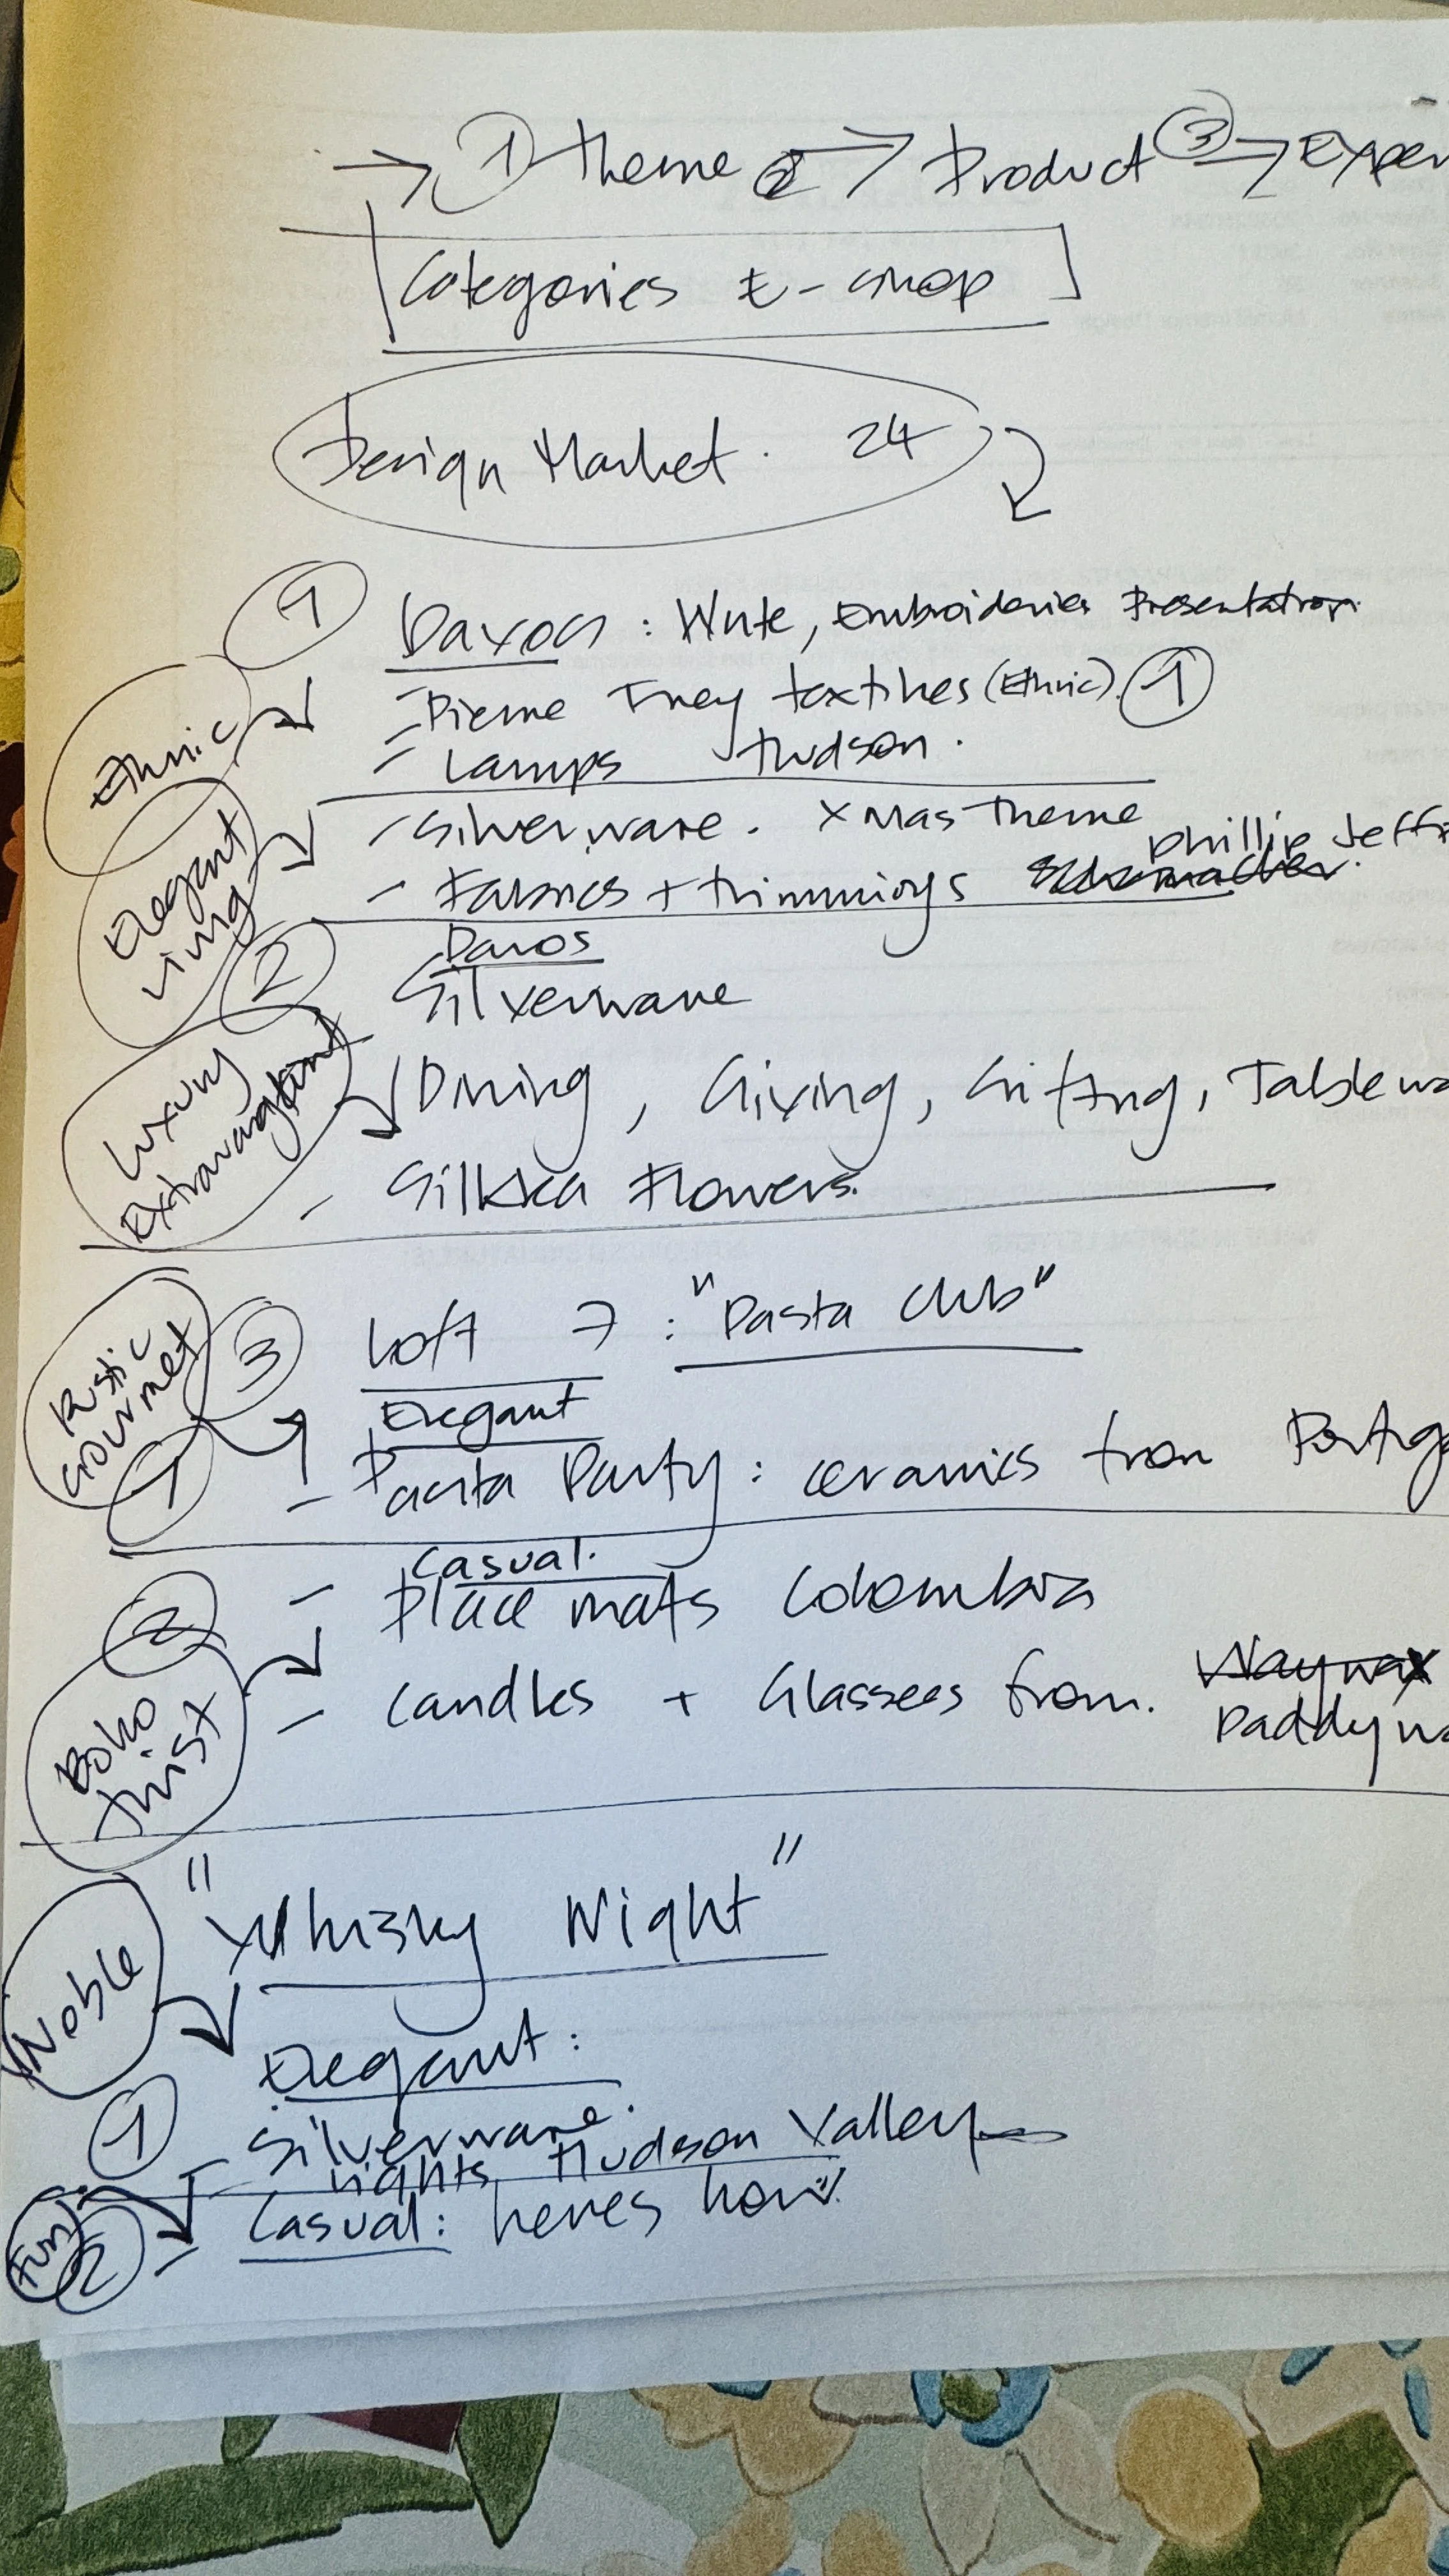 → ① Theme ② → Product ③ → Exper
Categories E-shop
Design Market. 24
① Davos : Wute, Embroideries Presentation.
Ethnic
- Pierre Frey textiles (Ethnic). ①
- Lamps Hudson.
Elegant Living
- Silverware. Xmas Theme
- Fabrics + trimmings Schumacher. Phillip Jeff
② Davos
Silverware
Luxury Extravagant
Dining, Giving, Gifting, Tablewa
- Silkka Flowers.
Rustic Gourmet
③ Loft 7 : "Pasta Club"
① Elegant
- Pasta Party : ceramics from Portuga
② Casual.
- Place mats Colombia
Boho twist
- Candles + Glassees from. Waywax
Paddywa
"Whisky Night"
Noble
① Elegant :
- Silverware.
Lights Hudson Valley
Fun!
② - Casual : heres how